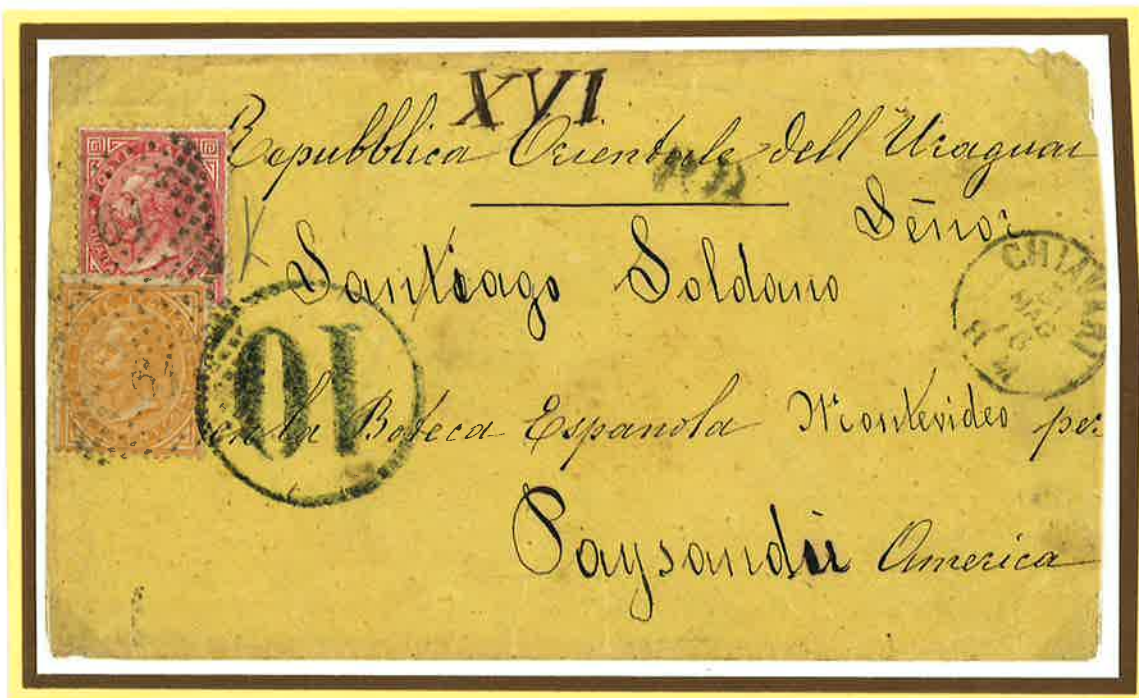 XVI
Repubblica Orientale dell Uraguai
Señor
Santiago Soldano
10
CHIAVARI
MAG
Boteca Espanola Montevideo per
Paysandù America